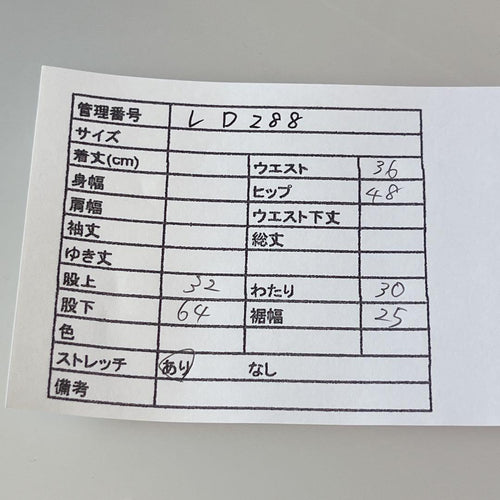 管理番号 LD288
サイズ
着丈(cm) ウエスト 36
身幅 ヒップ 48
肩幅 ウエスト下丈
袖丈 総丈
ゆき丈
股上 32 わたり 30
股下 64 裾幅 25
色
ストレッチ あり なし
備考